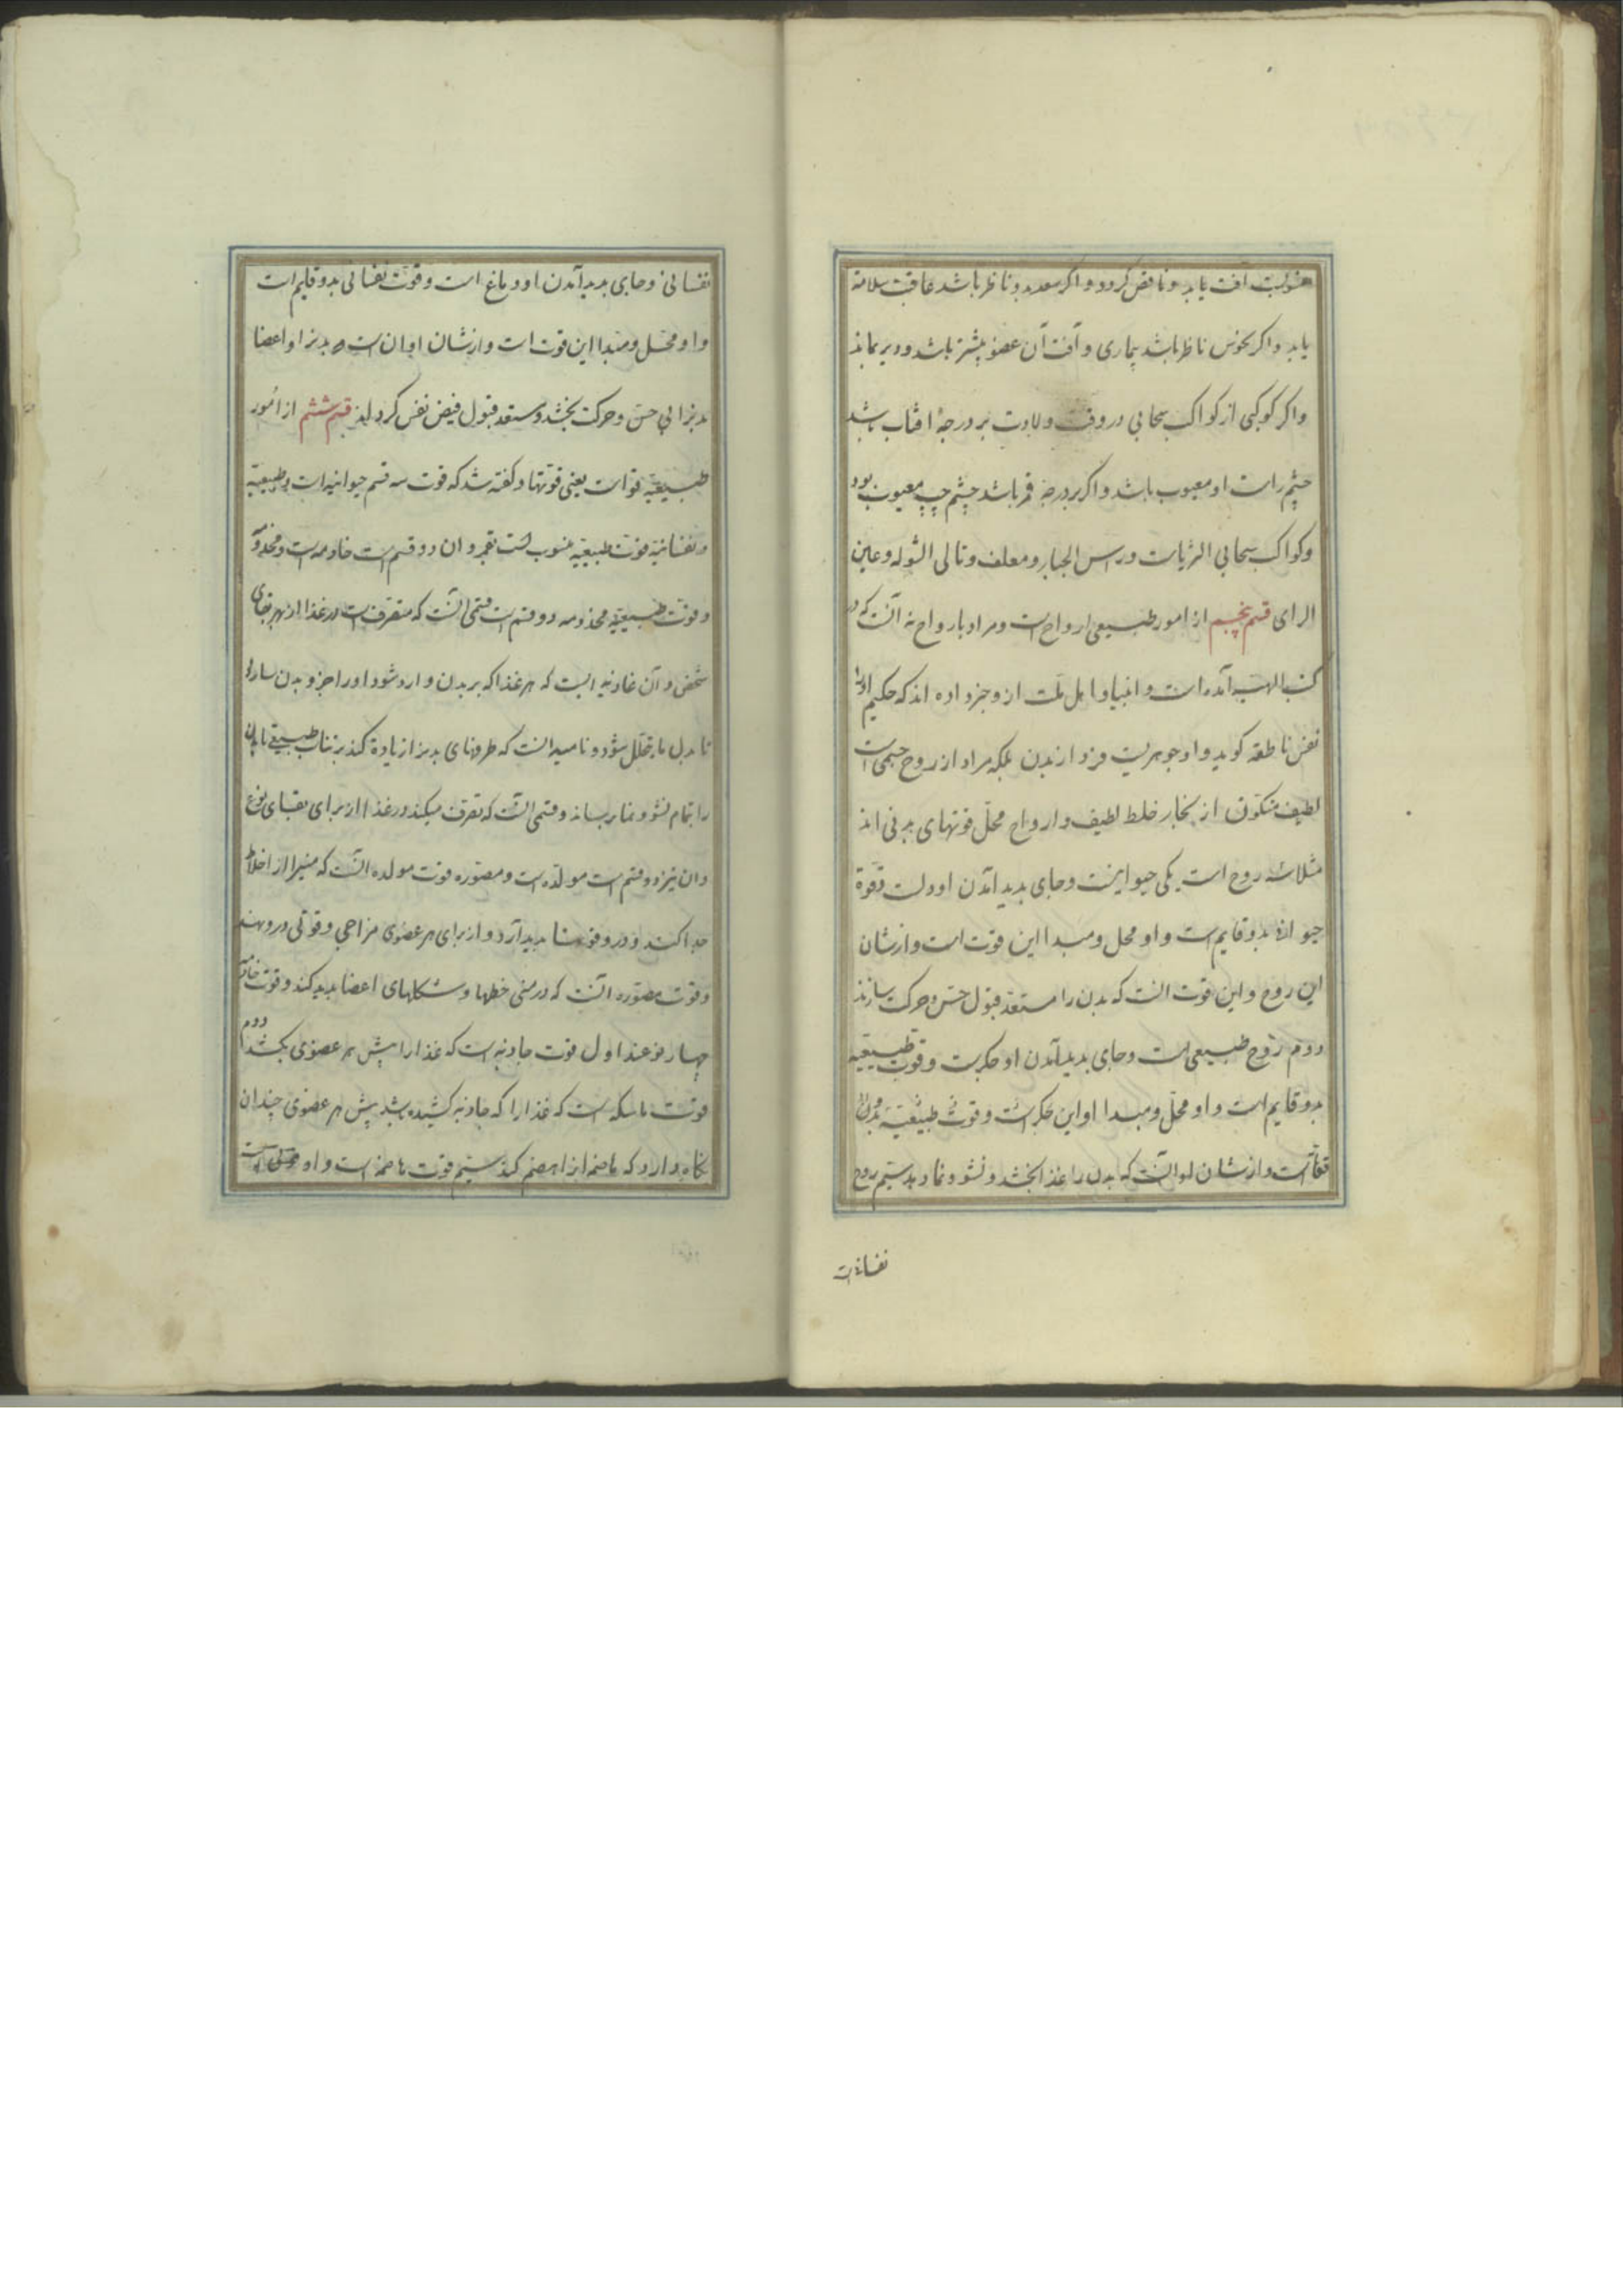 منسوبست آفت یابد و ناقص کردد و اکر سعدی بدو ناظر باشد عاقبت سلامة
یابد و اکر نحوس ناظر باشد بیماری و آفت آن عضو بیشتر باشد و دیر بماند
و اکر کوکبی از کواکب سحابی در وقت ولادت بر درجهٔ افتاب باشد
چشم راست او معیوب باشد و اکر بر درجهٔ قمر باشد چشم چپ معیوب بود
و کواکب سحابی الثریاست و راس الجبار و معلف و تالی الشوله و عین
الرای قسم پنجم از امور طبیعی ارواح است و مراد بارواح نه آنست که در
کتب الهیه آمده است و انبیا و اهل ملت از و خبر داده اند که حکیم اورا
نفس ناطقه کوید و او جوهریست فرد از بدن بلکه مراد از روح جسمی است
لطیف متکون از بخار خلط لطیف و ارواح محل قوتهای بدنی اند
مثلا سه روح است یکی حیوانیست و جای بدید آمدن او دلست و قوة
حیوانی بدو قایم است و او محل و مبدا این قوت است و از شان
این روح و این قوت انست که بدن را مستعد قبول حس و حرکت سازند
دوم روح طبیعی است و جای بدید آمدن او جکرست و قوت طبیعیه
بدو قایم است و او محل و مبدا او این جکر است و قوت طبیعیه بدو
است و از شان او انست که بدن را غذا بخشد و نشو و نما دهد سیم روح
نفسانیست
نفسانی و جای بدید آمدن او دماغ است و قوت نفسانی بدو قایم است
و او محل و مبدا این قوت است و از شان او ان است که بدنرا و اعضا
بدنرا بی حس و حرکت بخشد و مستعد قبول فیض نفس کرداند قسم ششم از امور
طبیعیة قوا است یعنی قوتها و کفته شد که قوت سه قسم حیوانیه است و طبیعیة
و نفسانیه قوت طبیعیه منسوب است بقمر و ان دو قسم است خادمه است و مخدومه
و قوت طبیعیة مخدومه دو قسم است قسمی انست که متصرف است در غذا از بهر بقای
شخص و آن غاذیه است که هر غذا که بر بدن وارد شود اورا جزو بدن سازد
تا بدل ما یتحلل شود و نامیه انست که طرفهای بدنرا زیادة کند بر تناسب طبیعی تا بدن
را بتمام نشو و نما برساند و قسمی انست که تصرف میکند در غذا از برای بقای نوع
و ان نیز دو قسم است مولده است و مصوره قوت مولده انست که منیرا از اخلاط
جدا کند و در و قوتها بدید آرد و از برای هر عضوی مزاجی و قوتی درو نهد
و قوت مصوره انست که در منی خطها و شکلهای اعضا بدید کند و قوت خادمه
چهار نوعند اول قوت جاذبه است که غذا را پیش هر عضوی بکشد دوم
قوت ماسکه است که غذا را که جاذبه کشیده باشد پیش هر عضوی چندان
نکاه دارد که هاضمه انرا هضم کند سیم قوت هاضمه است و او